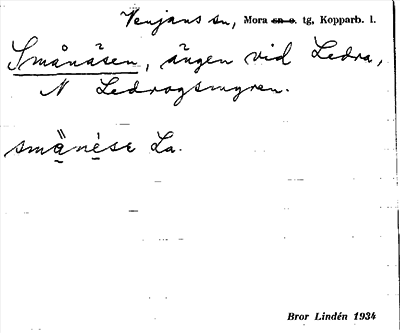 Venjans sn, Mora sn o. tg, Kopparb. l.
Smånäsen, ängen vid Ledra,
N Ledrogsmyren.
smänése La.
Bror Lindén 1934